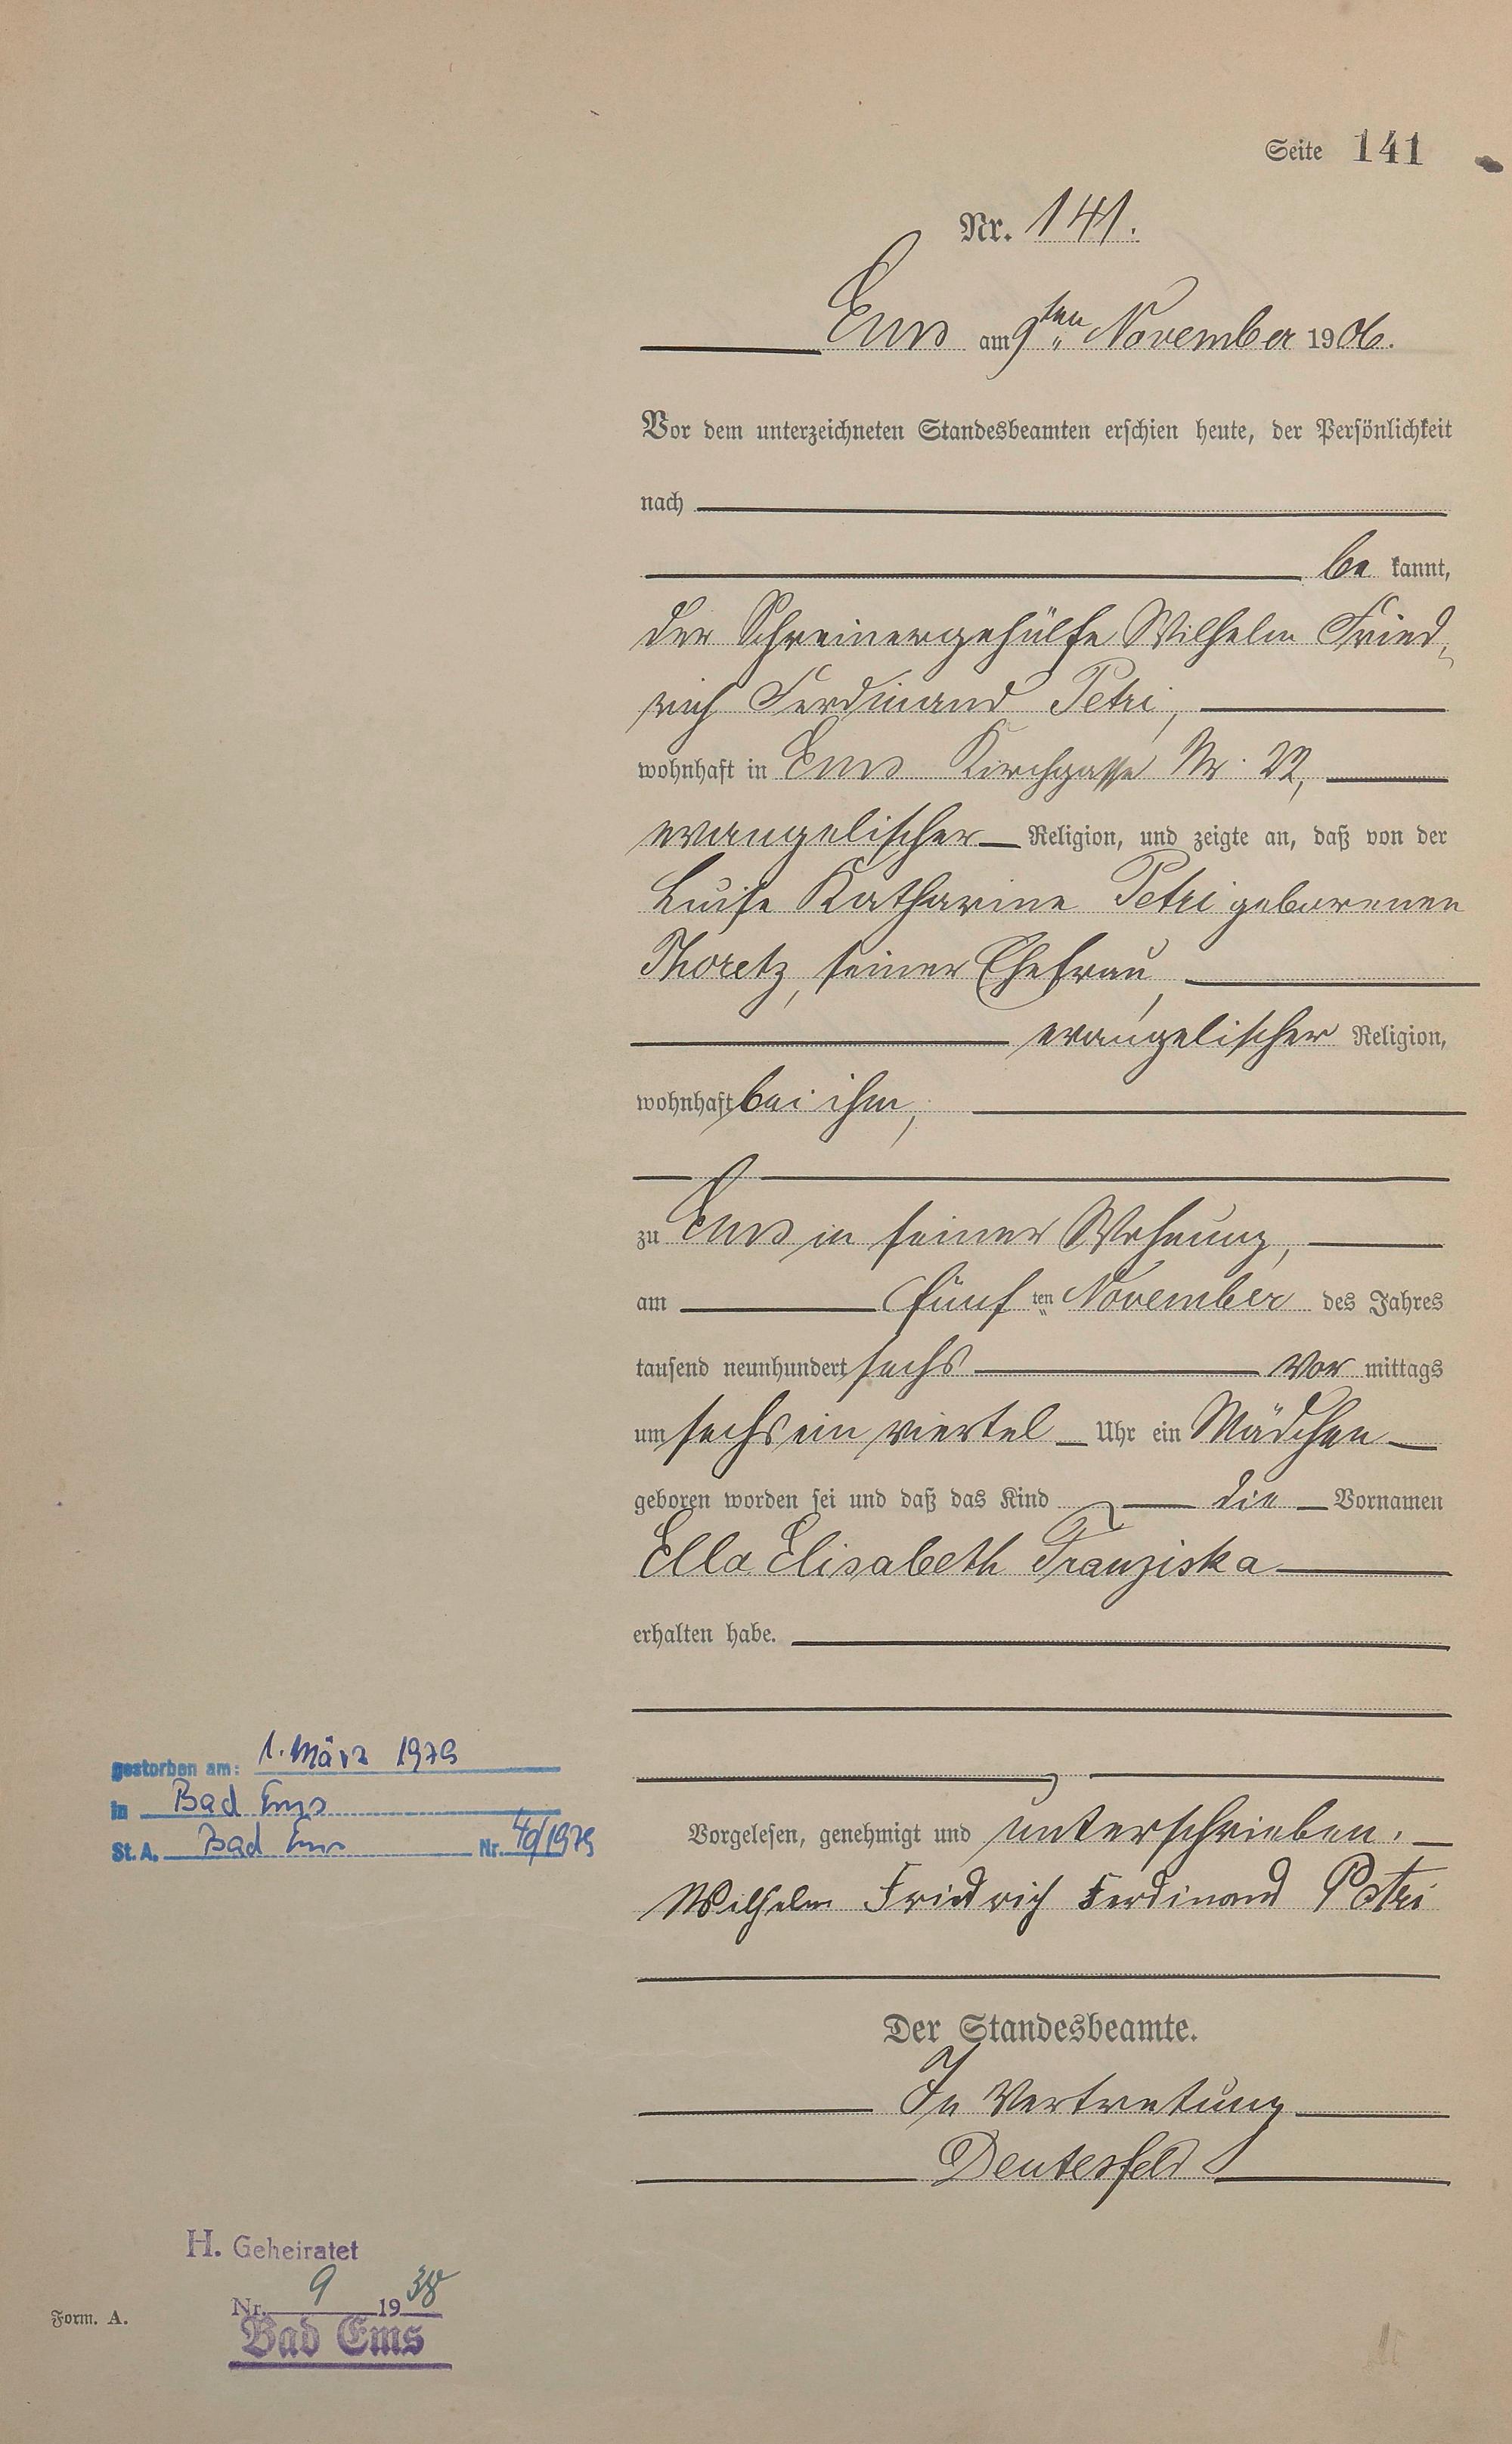 Seite 141
Nr. 141.
Ems am 9ten November 1906.
Vor dem unterzeichneten Standesbeamten erschien heute, der Persönlichkeit
nach
be kannt,
der Schreinergehülfe Wilhelm Fried-
rich Ferdinand Petri,
wohnhaft in Ems Kirchgasse Nr. 22,
evangelischer Religion, und zeigte an, daß von der
Luise Katharine Petri geborenen
Thoretz, seiner Ehefrau,
evangelischer Religion,
wohnhaft bei ihm,
zu Ems in seiner Wohnung,
am fünf ten November des Jahres
tausend neunhundert sechs Vor mittags
um sechs ein viertel Uhr ein Mädchen
geboren worden sei und daß das Kind die Vornamen
Ella Elisabeth Franziska
erhalten habe.
Vorgelesen, genehmigt und unterschrieben.
Wilhelm Friedrich Ferdinand Petri
Der Standesbeamte.
In Vertretung
Deutesfeld
gestorben am: 1. März 1979
in Bad Ems
St. A. Bad Ems Nr. 40/1979
H. Geheiratet
Nr. 9 1938
Bad Ems
Form. A.